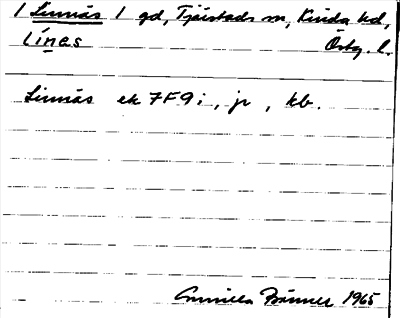 / Linnäs / gd, Tjärstads sn, Kinda hd,
línεs Östg. l.
Linnäs ek 7F9i, jr, kb.
Gunnilla Bönner 1965